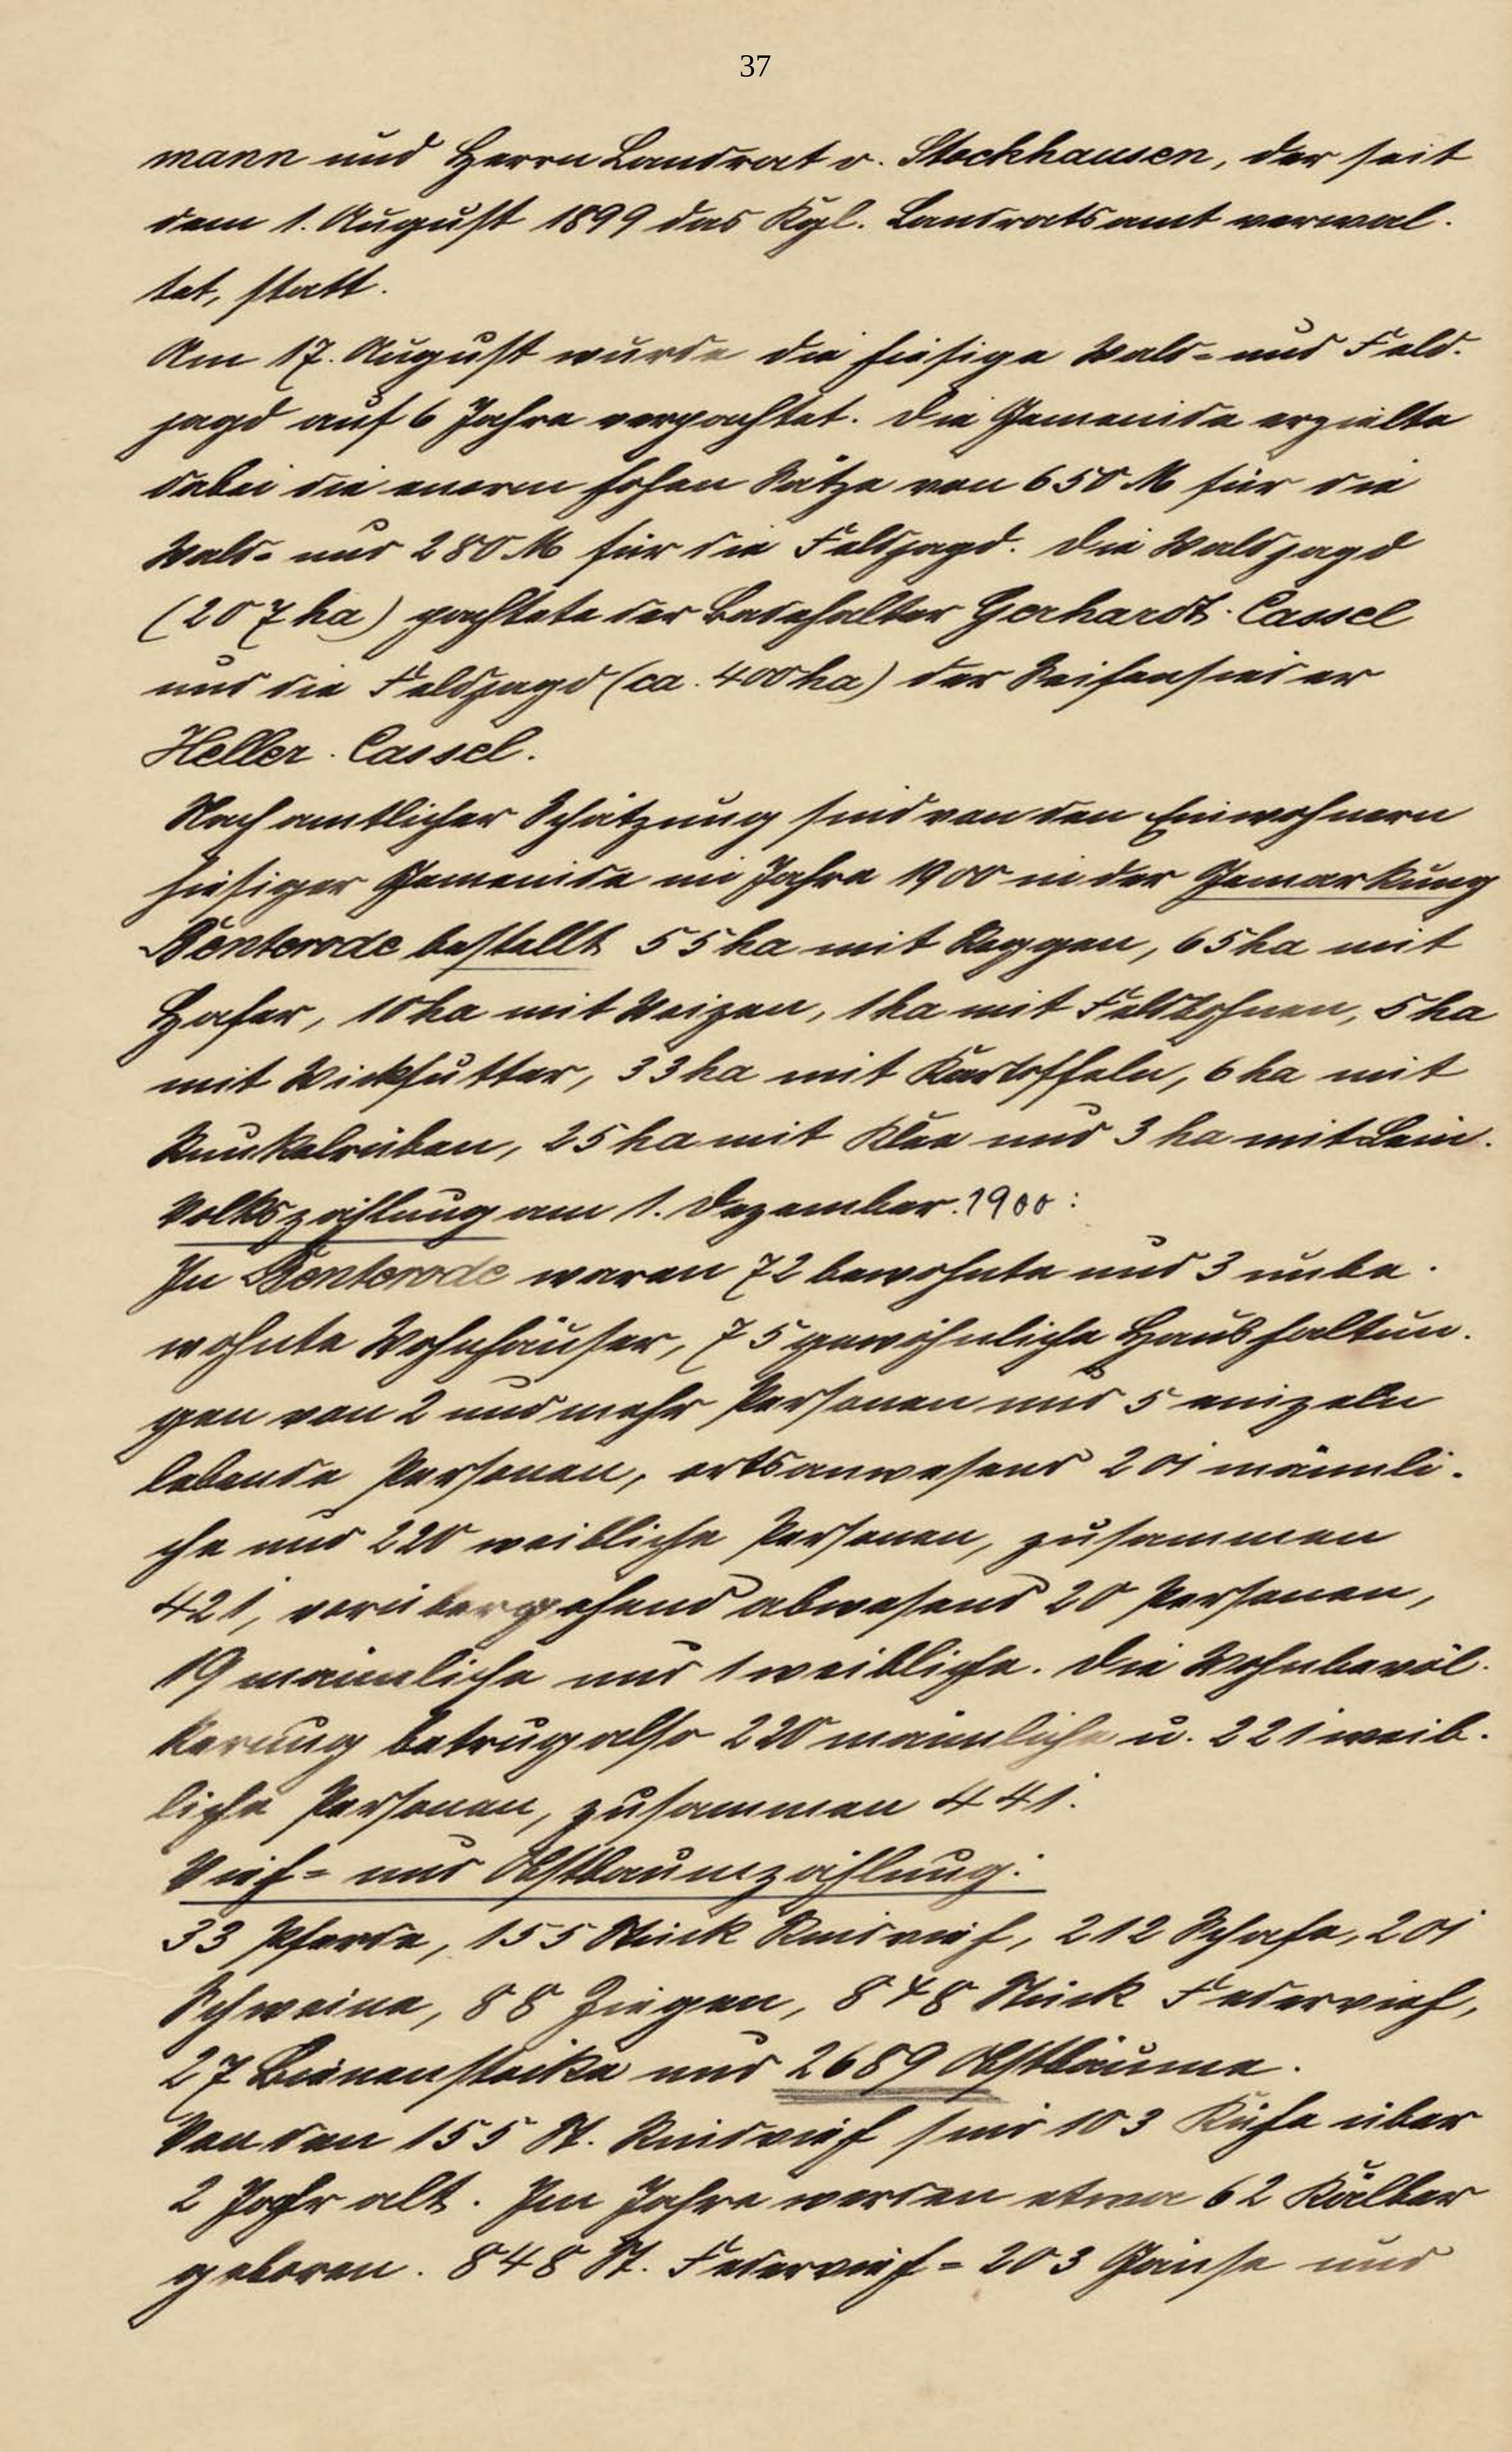 37
mann und Herrn Landrat v. Stockhausen, der seit
dem 1. August 1899 das Kgl. Landratsamt verwal-
tet, statt.
Am 17. August wurde die hiesige Wald- und Feld-
jagd auf 6 Jahre verpachtet. Die Gemeinde erzielte
dabei die enorm hohen Sätze von 650 M für die
Wald- und 280 M für die Feldjagd. Die Waldjagd
(207 ha) pachtete der Badehalter Gerhardt-Cassel
und die Feldjagd (ca. 400 ha) der Seifensieder
Heller-Cassel.
Nach amtlicher Schätzung sind von den Einwohnern
hiesiger Gemeinde im Jahre 1900 in der Gemarkung
Benterode bestellt 55 ha mit Roggen, 65 ha mit
Hafer, 10 ha mit Weizen, 1 ha mit Feldbohnen, 5 ha
mit Wickfutter, 33 ha mit Kartoffeln, 6 ha mit
Runkelrüben, 25 ha mit Klee und 3 ha mit Lein.
Volkszählung am 1. Dezember 1900:
In Benterode waren 72 bewohnte und 3 unbe-
wohnte Wohnhäuser, 75 gewöhnliche Haushaltun-
gen von 2 und mehr Personen und 5 einzeln
lebende Personen, ortsanwesend 201 männli-
che und 220 weibliche Personen, zusammen
421, vorübergehend abwesend 20 Personen,
19 männliche und 1 weibliche. Die Wohnbevöl-
kerung betrug also 220 männliche u. 221 weib-
liche Personen, zusammen 441.
Vieh- und Obstbaumzählung:
33 Pferde, 155 Stück Rindvieh, 212 Schafe, 201
Schweine, 88 Ziegen, 848 Stück Federvieh,
27 Bienenstöcke und 2689 Obstbäume.
Von den 155 St. Rindvieh sind 103 Kühe über
2 Jahr alt. Im Jahre werden etwa 62 Kälber
geboren. 848 St. Federvieh = 203 Gänse und